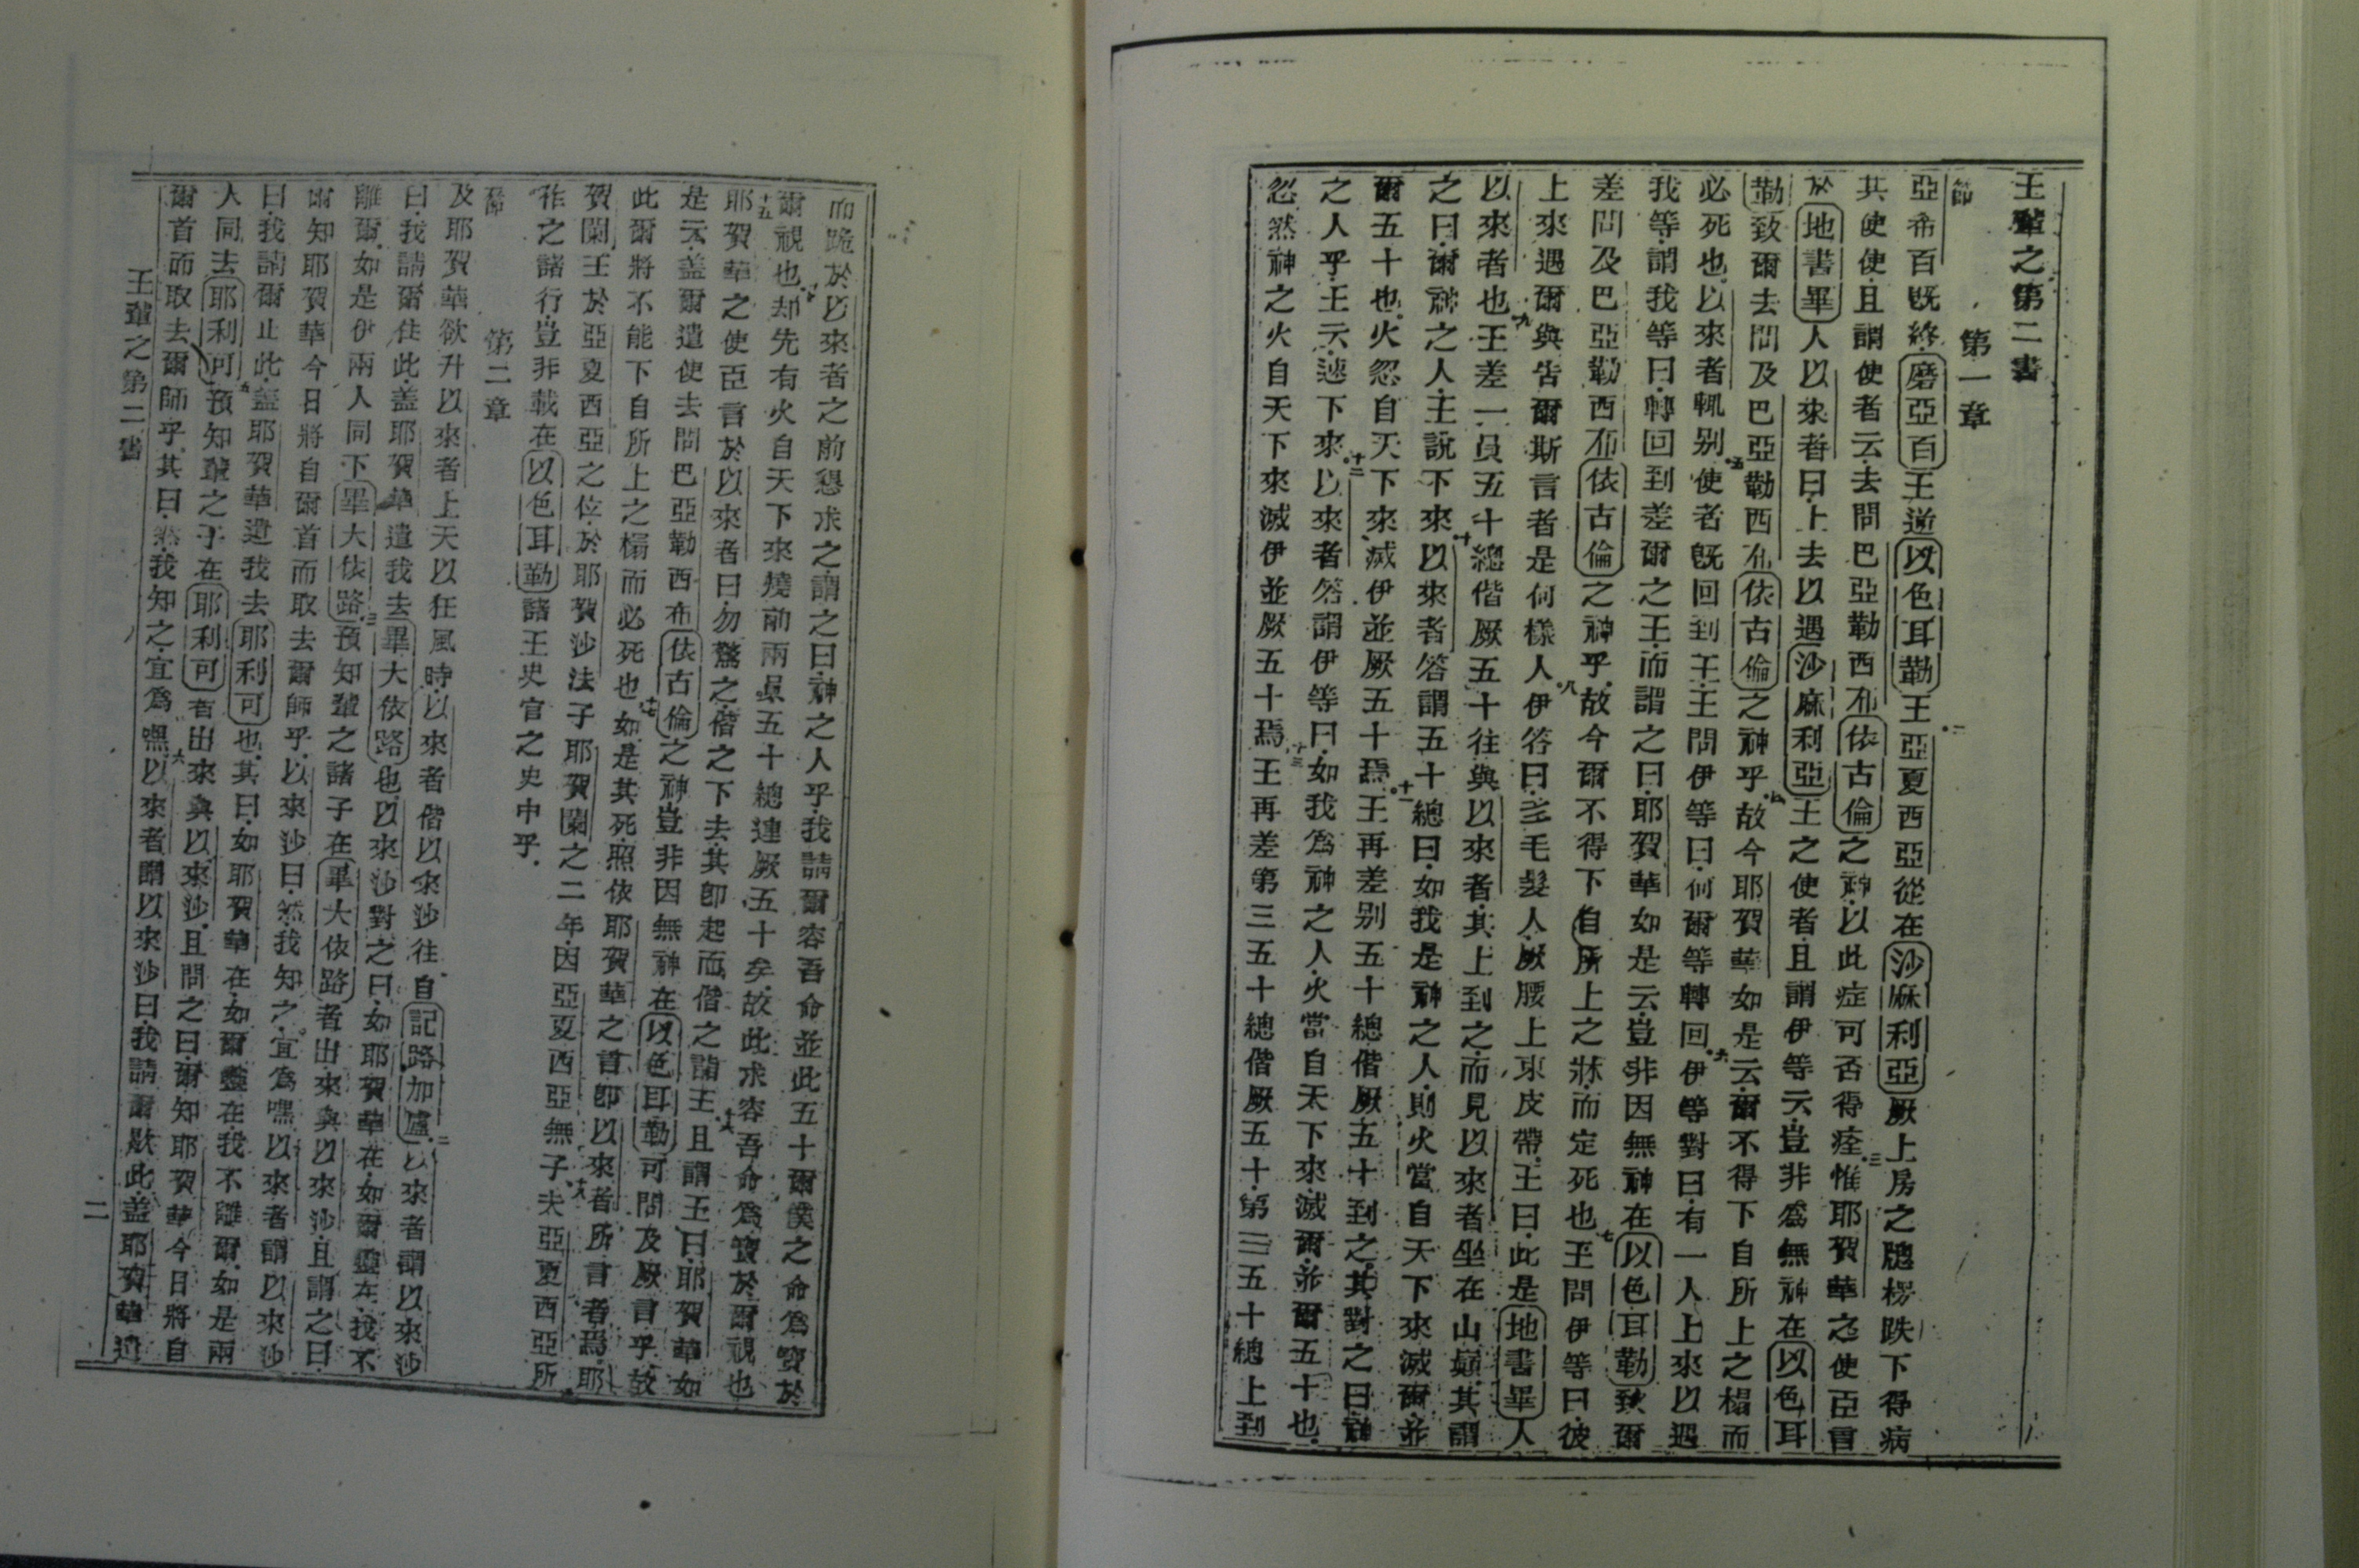 王輩之第二書
節 第一章
亞希百旣終磨亞百王逆以色耳勒王亞夏西亞從在沙麻利亞厥上房之牕楞跌下得病
其使使且謂使者云去問巴亞勒西布依古倫之神以此症可否得痊惟耶賀華之使臣言
於地書畢人以來者曰上去以遇沙麻利亞王之使者且謂伊等云豈非爲無神在以色耳
勒致爾去問及巴亞勒西布依古倫之神乎故今耶賀華如是云爾不得下自所上之榻而
必死也以來者輒别使者旣回到王王問伊等曰何爾等轉回伊等對曰有一人上來以遇
我等謂我等曰轉回到差爾之王而謂之曰耶賀華如是云豈非因無神在以色耳勒致爾
差問及巴亞勒西布依古倫之神乎故今爾不得下自所上之牀而定死也王問伊等曰彼
上來遇爾與吿爾斯言者是何樣人伊答曰多毛髮人厥腰上束皮帶王曰此是地書畢人
以來者也王差一員五十總偕厥五十往與以來者其上到之而見以來者坐在山巔其謂
之曰爾神之人王說下來以來者答謂五十總曰如我是神之人則火當自天下來滅爾並
爾五十也火忽自天下來滅伊並厥五十焉王再差别五十總偕厥五十到之其對之曰神
之人乎王云速下來以來者答謂伊等曰如我爲神之人火當自天下來滅爾並爾五十也
忽然神之火自天下來滅伊並厥五十焉王再差第三五十總偕厥五十第三五十總上到
而跪於以來者之前懇求之謂之曰神之人乎我請爾容吾命並此五十爾僕之命爲寶於
爾視也却先有火自天下來燒前兩員五十總連厥五十矣故此求容吾命爲寶於爾視也
耶賀華之使臣言於以來者曰勿驚之偕之下去其卽起而偕之詣王且謂王曰耶賀華如
是云盖爾遣使去問巴亞勒西布依古倫之神豈非因無神在以色耳勒可問及厥言乎故
此爾將不能下自所上之榻而必死也如是其死照依耶賀華之言卽以來者所言者焉耶
賀闌王於亞夏西亞之位於耶賀沙法子耶賀闌之二年因亞夏西亞無子夫亞夏西亞所
作之諸行豈非載在以色耳勒諸王史官之史中乎
節 第二章
及耶賀華欲升以來者上天以狂風時以來者偕以來沙往自記路加盧以來者謂以來沙
曰我請爾住此盖耶賀華遣我去畢大依路也以來沙對之曰如耶賀華在如爾靈在我不
離爾如是伊兩人同下畢大依路預知輩之諸子在畢大依路者出來與以來沙且謂之曰
爾知耶賀華今日將自爾首而取去爾師乎以來沙曰然我知之宜爲嘿以來者謂以來沙
曰我請爾止此盖耶賀華遣我去耶利可也其曰如耶賀華在如爾靈在我不離爾如是兩
人同去耶利可預知輩之子在耶利可者出來與以來沙且問之曰爾知耶賀華今日將自
爾首而取去爾師乎其曰然我知之宜爲嘿以來者謂以來沙曰我請爾歇此盖耶賀華遣
王輩之第二書 二